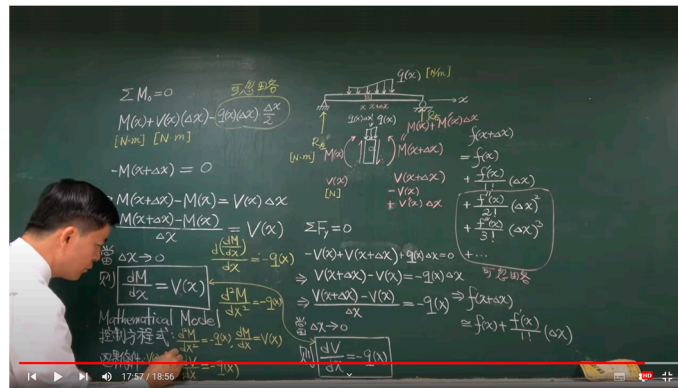 ΣM₀=0
可忽略
M(x)+V(x)(Δx)-q(x)(Δx) Δx/2
[N·m] [N·m]
-M(x+Δx) = 0
M(x+Δx)-M(x)=V(x)Δx
(M(x+Δx)-M(x))/Δx = V(x)
當 Δx→0
則 dM/dx = V(x)
Mathematical Model
控制方程式: d²M/dx² = -q(x), dM/dx = V(x)
d(dM/dx)/dx = -q(x)
d²M/dx² = -q(x)
q(x) [N/m]
x x+Δx
x
q(x)
M(x)+M'(x)Δx
[N·m] M(x)
M(x+Δx)
V(x)
[N]
V(x+Δx)
ΣFy=0
-V(x)+V(x+Δx)+q(x)Δx=0
⇒ V(x+Δx)-V(x)=-q(x)Δx
⇒ (V(x+Δx)-V(x))/Δx = -q(x)
當 Δx→0
則 dV/dx = -q(x)
f(x+Δx)
= f(x)
+ f'(x)/1! (Δx)
+ f''(x)/2! (Δx)²
+ f'''(x)/3! (Δx)³
+...
可忽略
⇒ f(x+Δx)
≃ f(x)+ f'(x)/1! (Δx)
17:57 / 18:56
HD